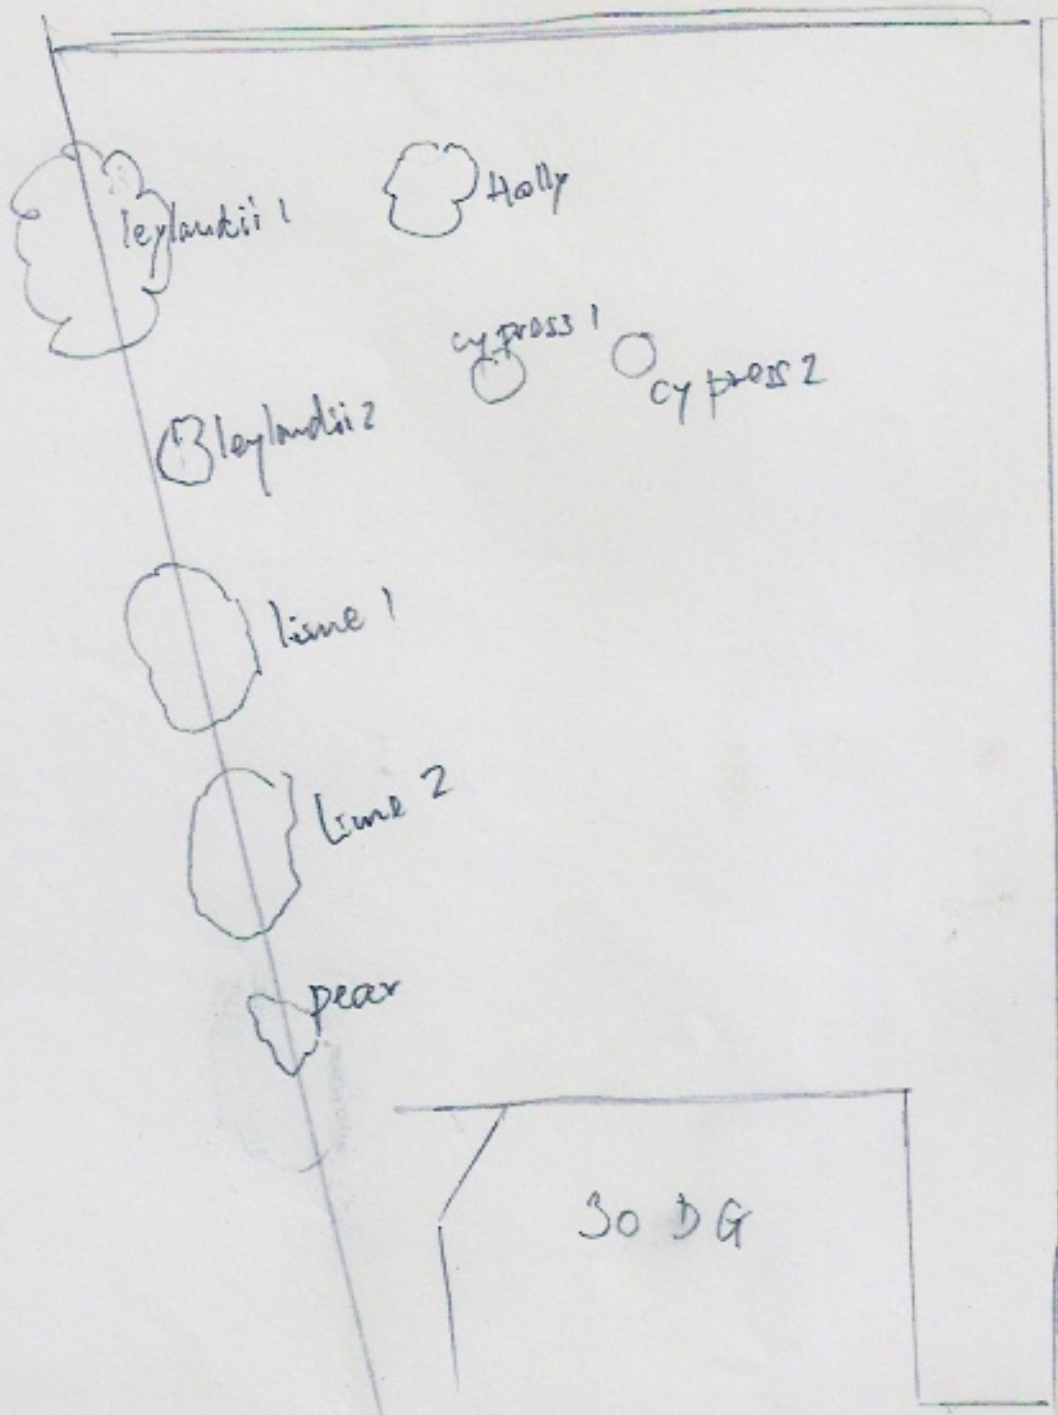 leylandii 1
Holly
cypress 1
cypress 2
leylandii 2
lime 1
Lime 2
pear
30 DG